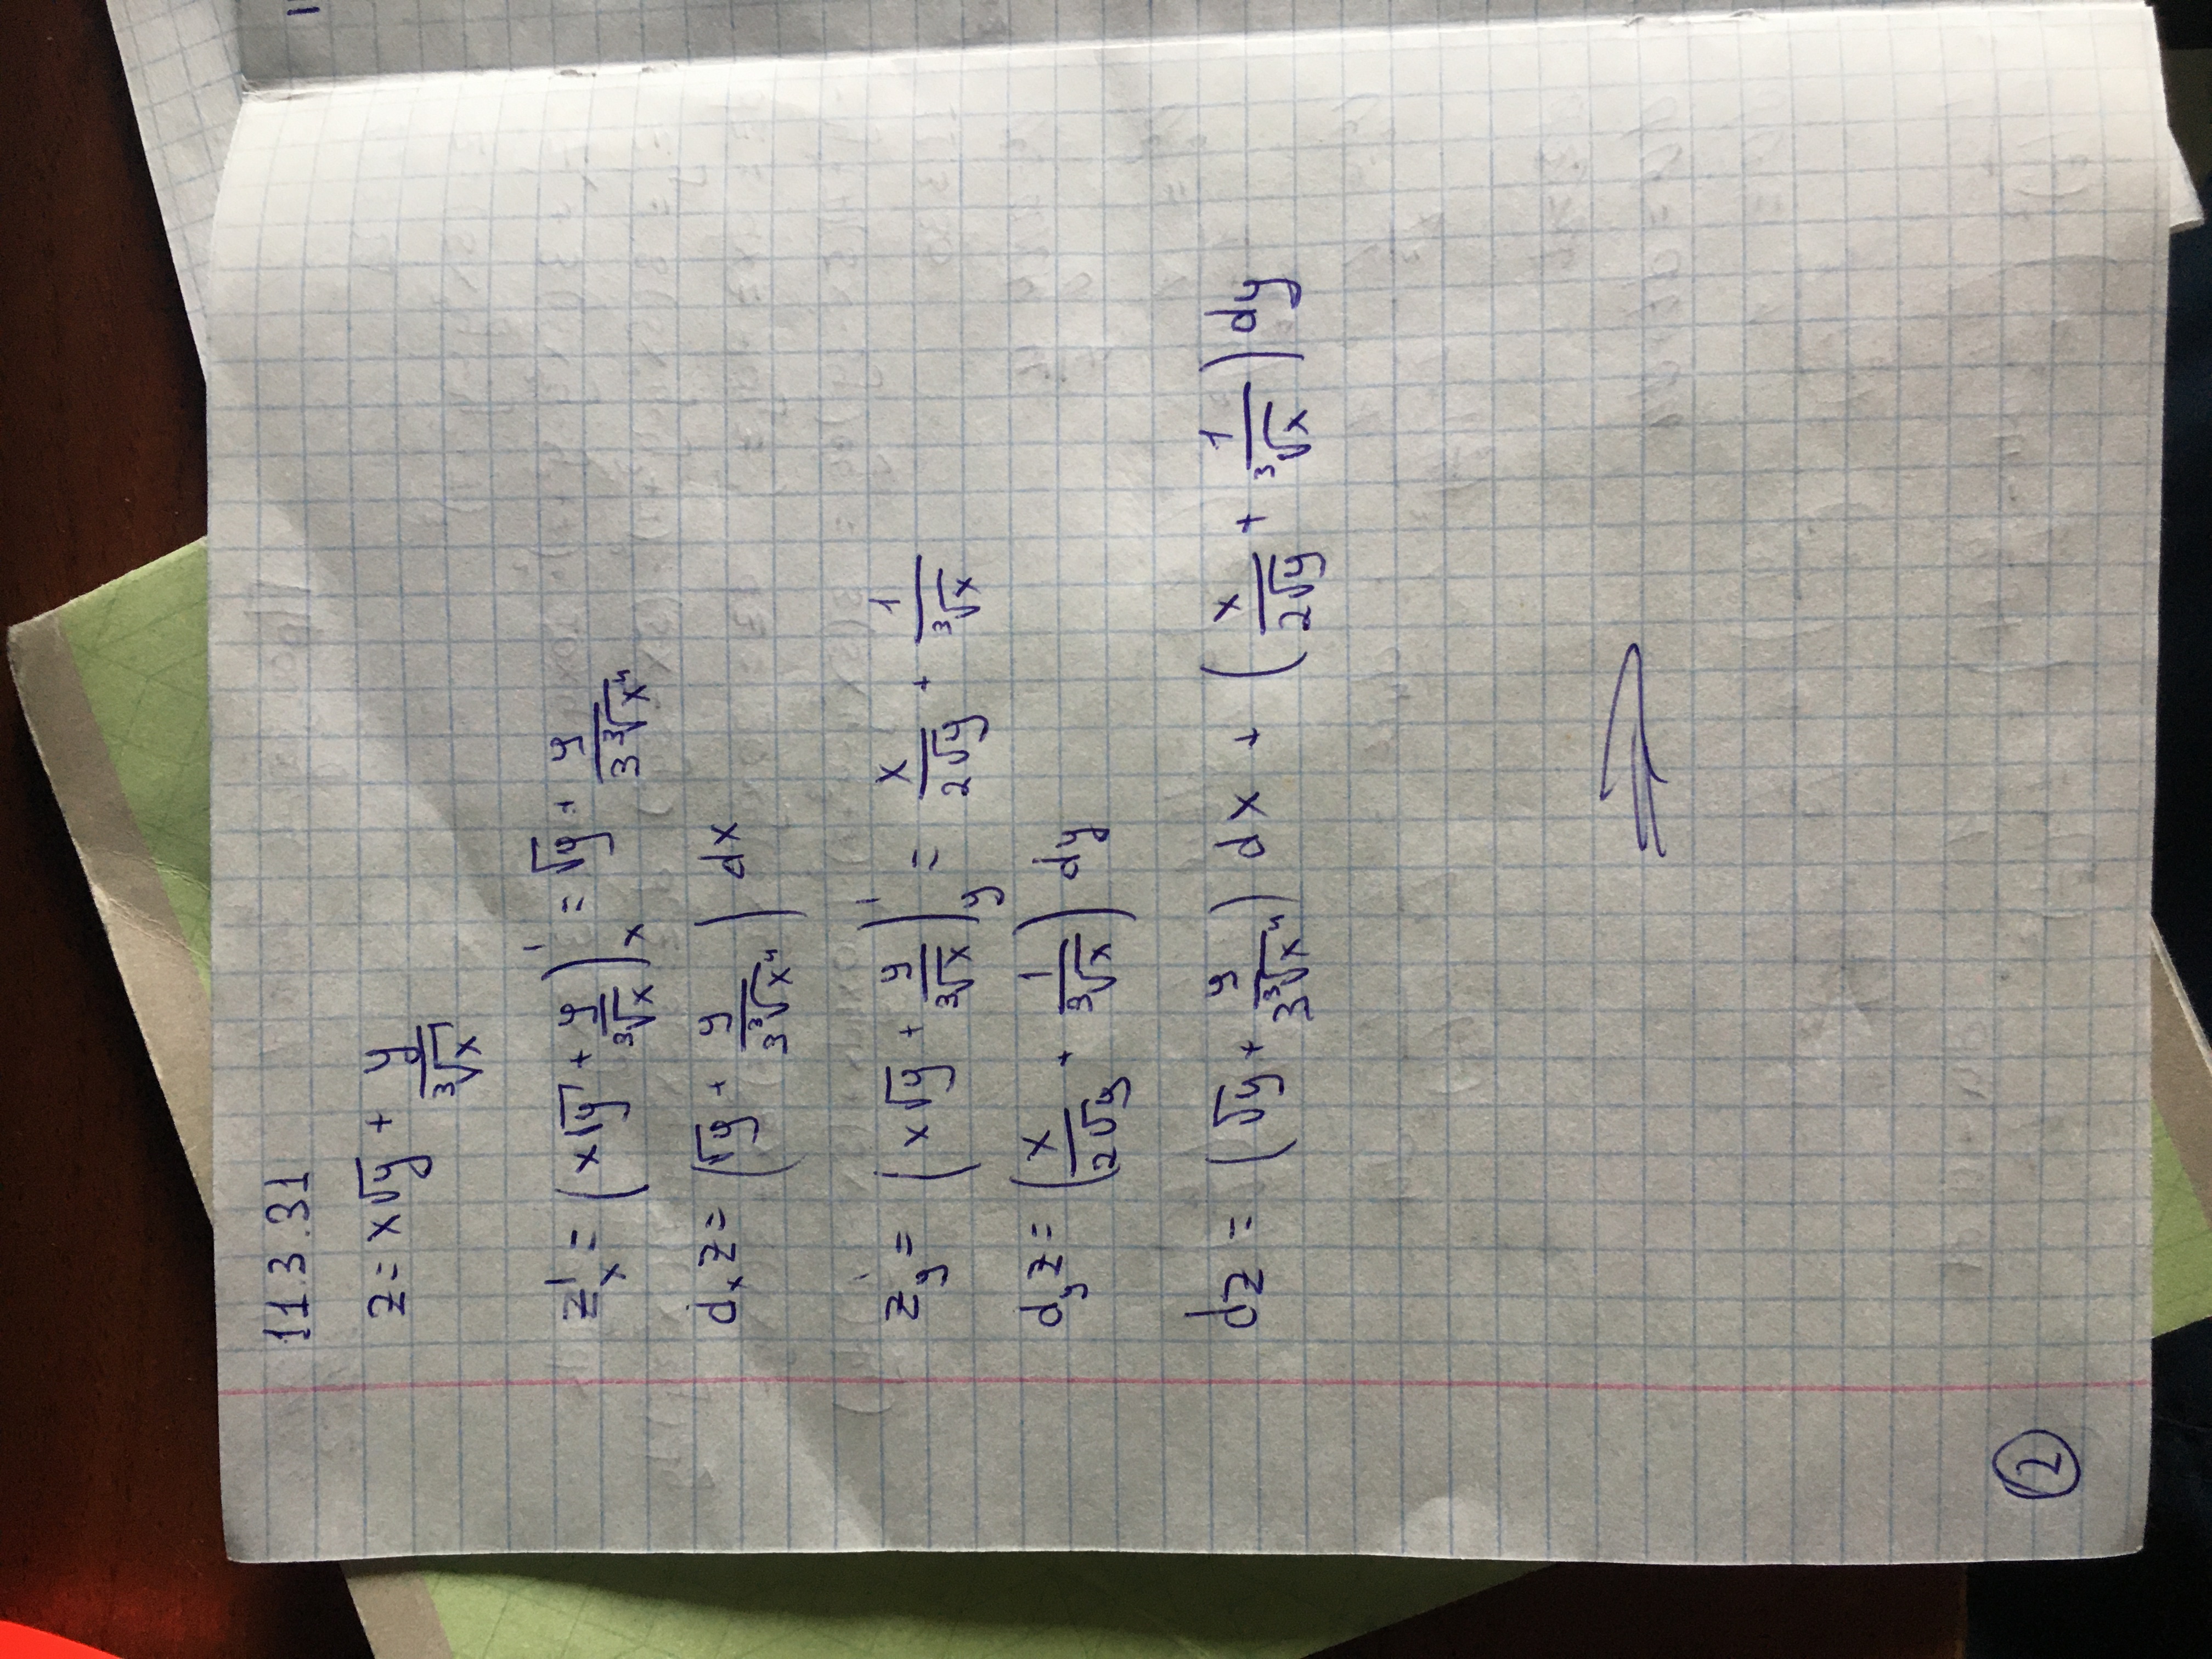 11.3.31
z = x√y + y/∛x
z'ₓ = (x√y + y/∛x)'ₓ = √y + y/(3∛x⁴)
dₓz = (√y + y/(3∛x⁴)) dx
z'_y = (x√y + y/∛x)'_y = x/(2√y) + 1/∛x
d_y z = (x/(2√y) + 1/∛x) dy
dz = (√y + y/(3∛x⁴)) dx + (x/(2√y) + 1/∛x) dy
⇒
2